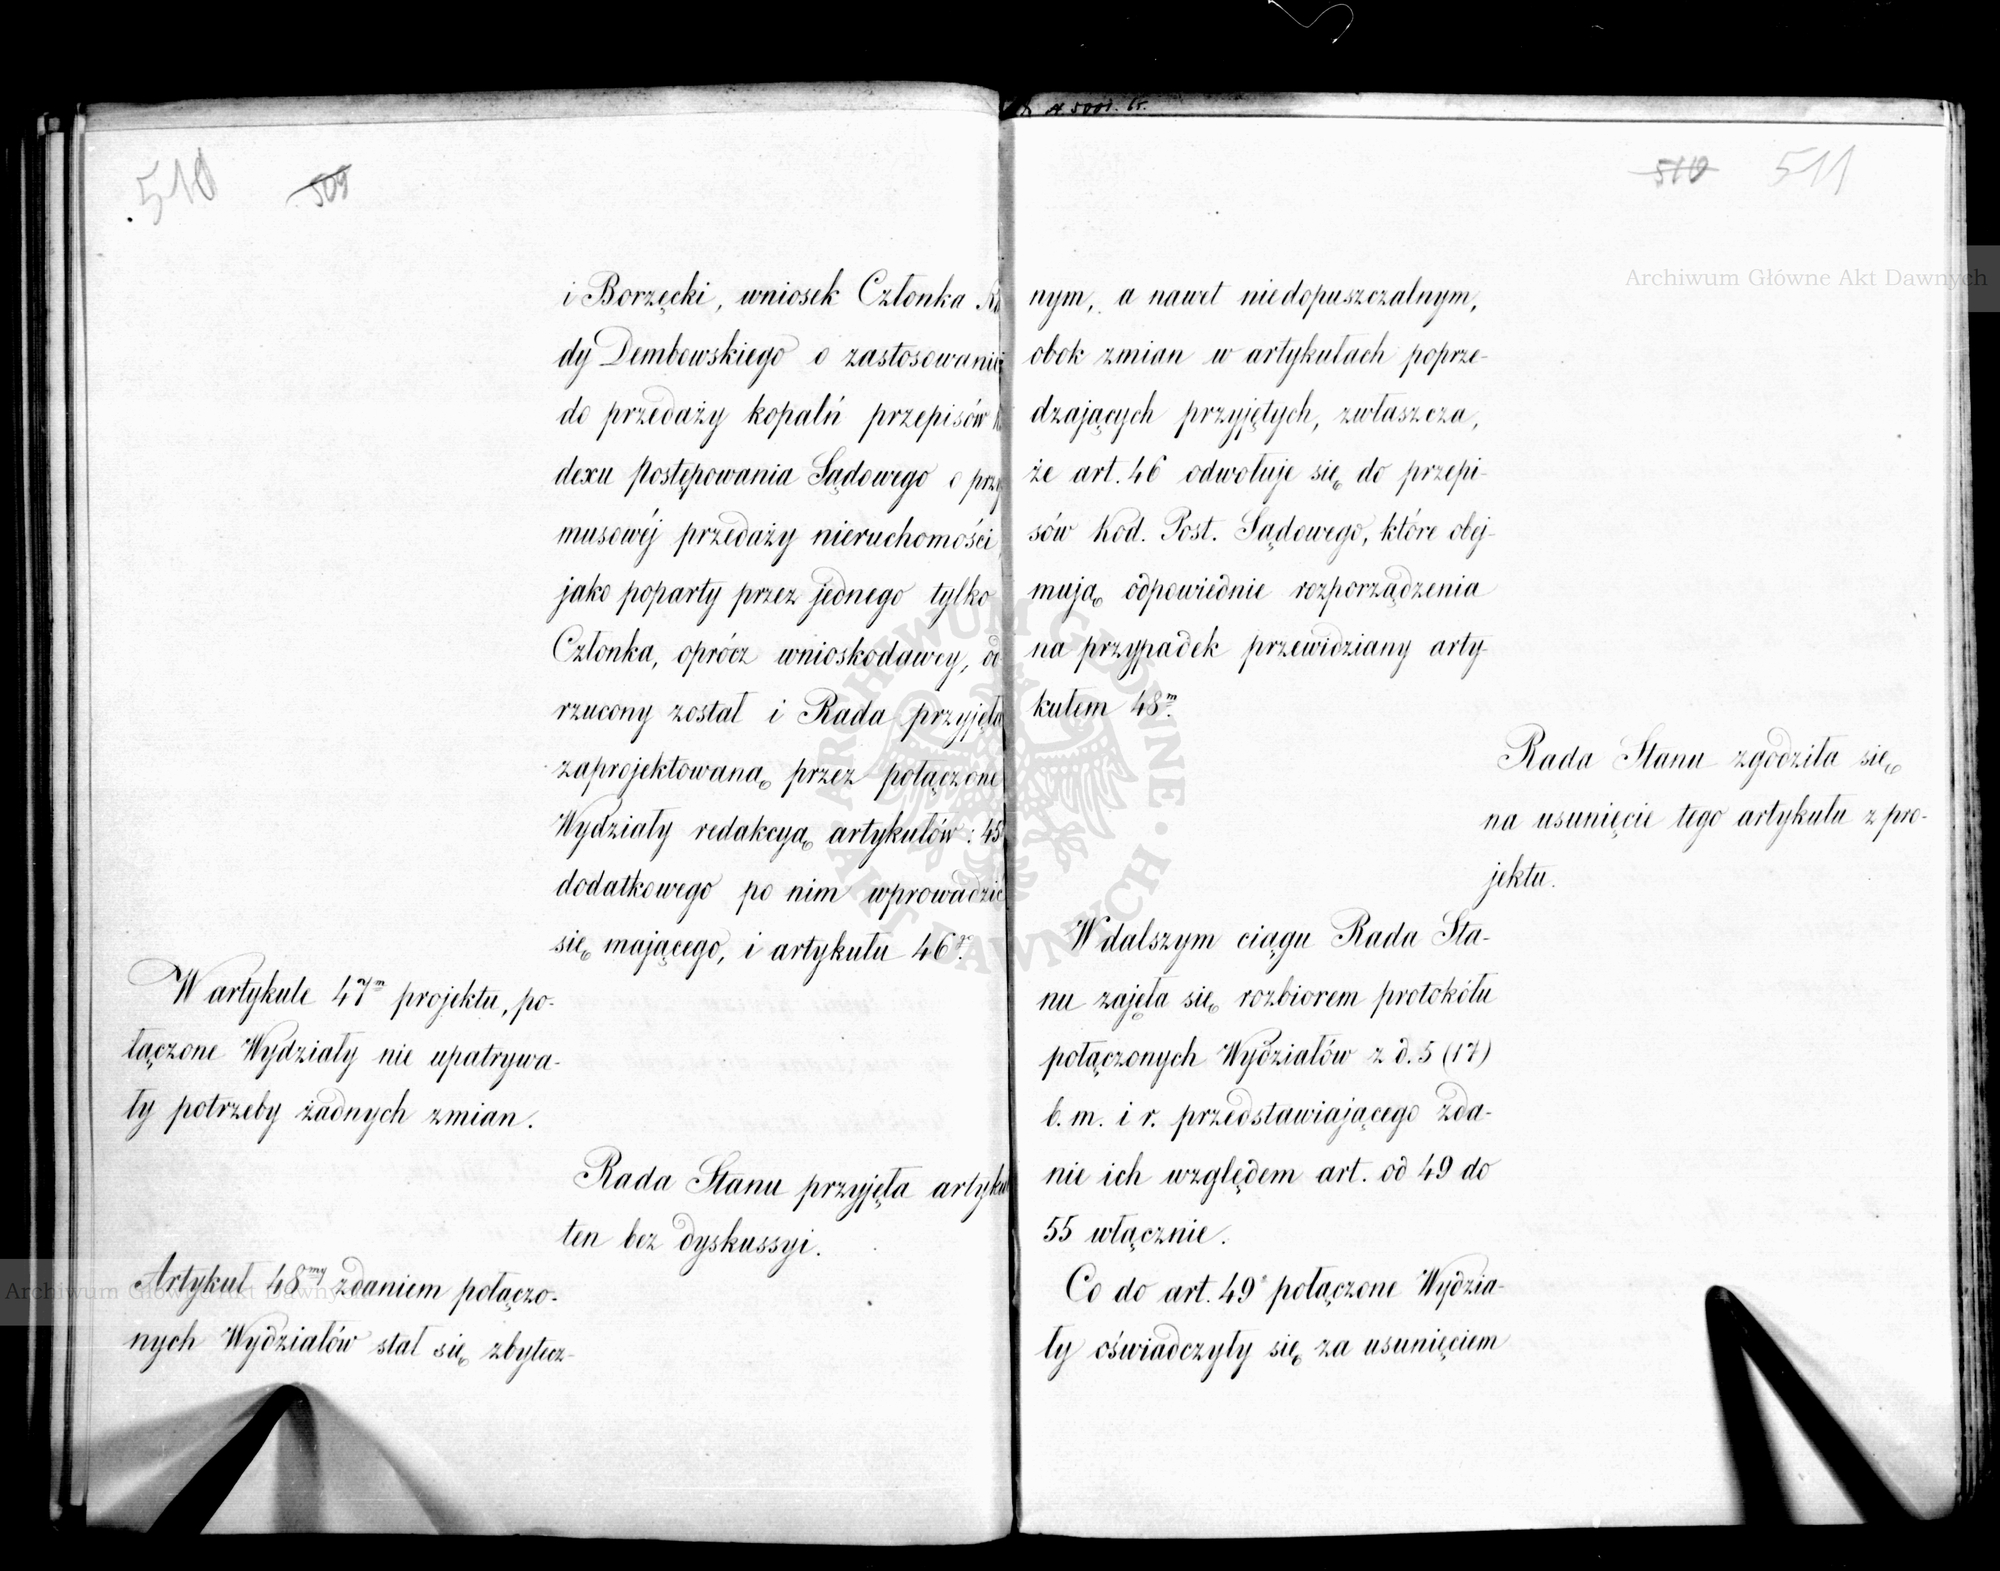 510 509
i Borzęcki, wniosek Członka
dy Dembowskiego o zastosowanie
do przedaży kopalń przepisów
dexu Postępowania Sądowego o
musowéj przedaży nieruchomości,
jako poparty przez jednego tylko
Członka, oprócz wnioskodawcy, od
rzucony został i Rada przyjęła
zaprojektowaną przez połączone
Wydziały redakcyą artykułów: 45
dodatkowego po nim wprowadzić
się mającego, i artykułu 46go.
W artykule 47m projektu, po-
łączone Wydziały nie upatrywa-
ły potrzeby żadnych zmian.
Rada Stanu przyjęła artykuł
ten bez dyskussyi.
Artykuł 48my zdaniem połączo-
nych Wydziałów stał się zbytecz-
510 511
nym, a nawet niedopuszczalnym,
obok zmian w artykułach poprze-
dzających przyjętych, zwłaszcza,
że art. 46 odwołuje się do przepi-
sów Kod. Post. Sądowego, które obej-
mują odpowiednie rozporządzenia
na przypadek przewidziany arty-
kułem 48m.
Rada Stanu zgodziła się
na usunięcie tego artykułu z pro-
jektu.
W dalszym ciągu Rada Sta-
nu zajęła się rozbiorem protokółu
połączonych Wydziałów z d. 5 (17)
b. m. i r. przedstawiającego zda-
nie ich względem art. od 49 do
55 włącznie.
Co do art. 49 połączone Wydzia-
ły oświadczyły się za usunięciem
Archiwum Główne Akt Dawnych
Archiwum Główne Akt Dawnych
ARCHIWUM GŁÓWNE · AKT DAWNYCH ·